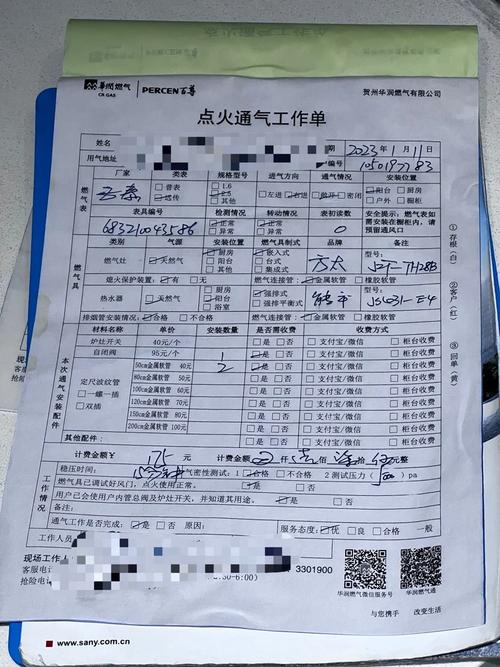 华润燃气 CR GAS PERCEN百尊 贺州华润燃气有限公司
点火通气工作单
姓名 期 2023年1月11日
用气地址 1050197783
厂家 类表 规格型号 进气方向 通气情况 安装位置
燃气表 普表 远传 1.6 2.5 其他 左进 右进 开 密闭 阳台 厨房 户外 橱柜
表具编号 检测情况 转动情况 表初读数 安全提示:燃气表如需安装在橱柜内,请预留通风口
683210043586 正常 异常 正常 异常 0
类别 气源 安装位置 燃气具制式 品牌 型号:
燃气具 燃气灶 天然气 厨房 阳台 其他 嵌入式 台式 集成式 方太 JZT-TH28B
熄火保护装置: 有 无 燃气连接管: 金属软管 橡胶软管
热水器 天然气 厨房 阳台 浴室 强排式 强排平衡式 型号:
排烟管安装情况: 合格 不合格 燃气连接管: 金属软管 橡胶软管
本次通气安装配件 材料名称 单价 安装数量 是否需收费 收费方式
炉灶开关 40元/个 是 否 支付宝/微信 柜台收费
自闭阀 95元/个 1 是 否 支付宝/微信 柜台收费
定尺波纹管 一螺一插 双插
50cm金属软管 40元 2 是 否 支付宝/微信 柜台收费
80cm金属软管 50元 是 否 支付宝/微信 柜台收费
100cm金属软管 60元 是 否 支付宝/微信 柜台收费
120cm金属软管 70元 是 否 支付宝/微信 柜台收费
150cm金属软管 80元 是 否 支付宝/微信 柜台收费
200cm金属软管 100元 是 否 支付宝/微信 柜台收费
其他配件:
计费金额¥ 175 元 计费金额 仟 壹 佰 拾 元整
工作情况 稳压时间: 气密性测试:1 合格 不合格 2 测试压力( ) pa
燃气具已调试好风门,点火使用正常。 是 否
用户已会使用户内管总阀及炉灶开关,并知道其用途。 是 否
备注:
通气工作是否完成: 是 否 原因: 服务态度: 优 良 合格 一般
工作人员
现场工作人
客服电话 3301900
抢险电 :30-6:00)
华润燃气微信服务号 华润燃气通
与您携手 改变生活
①存根(白) ②客户(红) ③回单(黄)
www.sany.com.cn